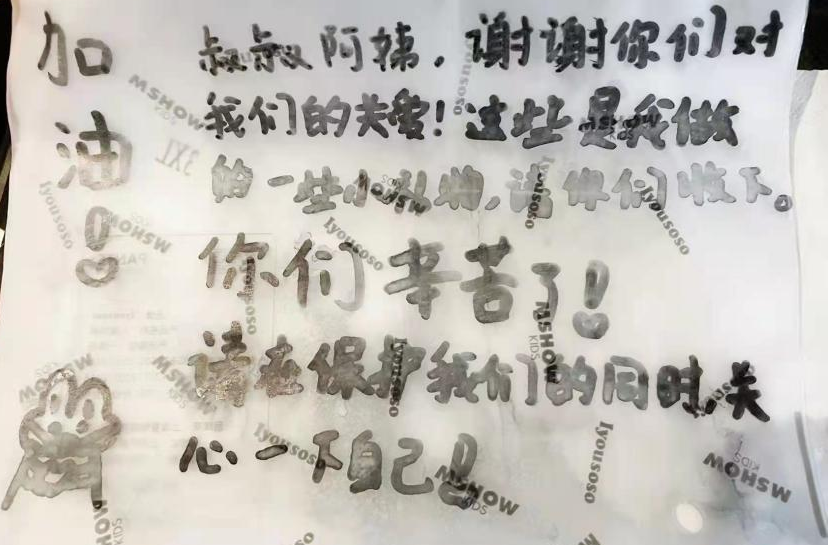 加油!
叔叔阿姨,谢谢你们对
我们的关爱!这些是我做
给一些小礼物,请你们收下。
你们辛苦了!
请在保护我们的同时,关
心一下自己!
MSHOW
KIDS
3XL
Iyousoso